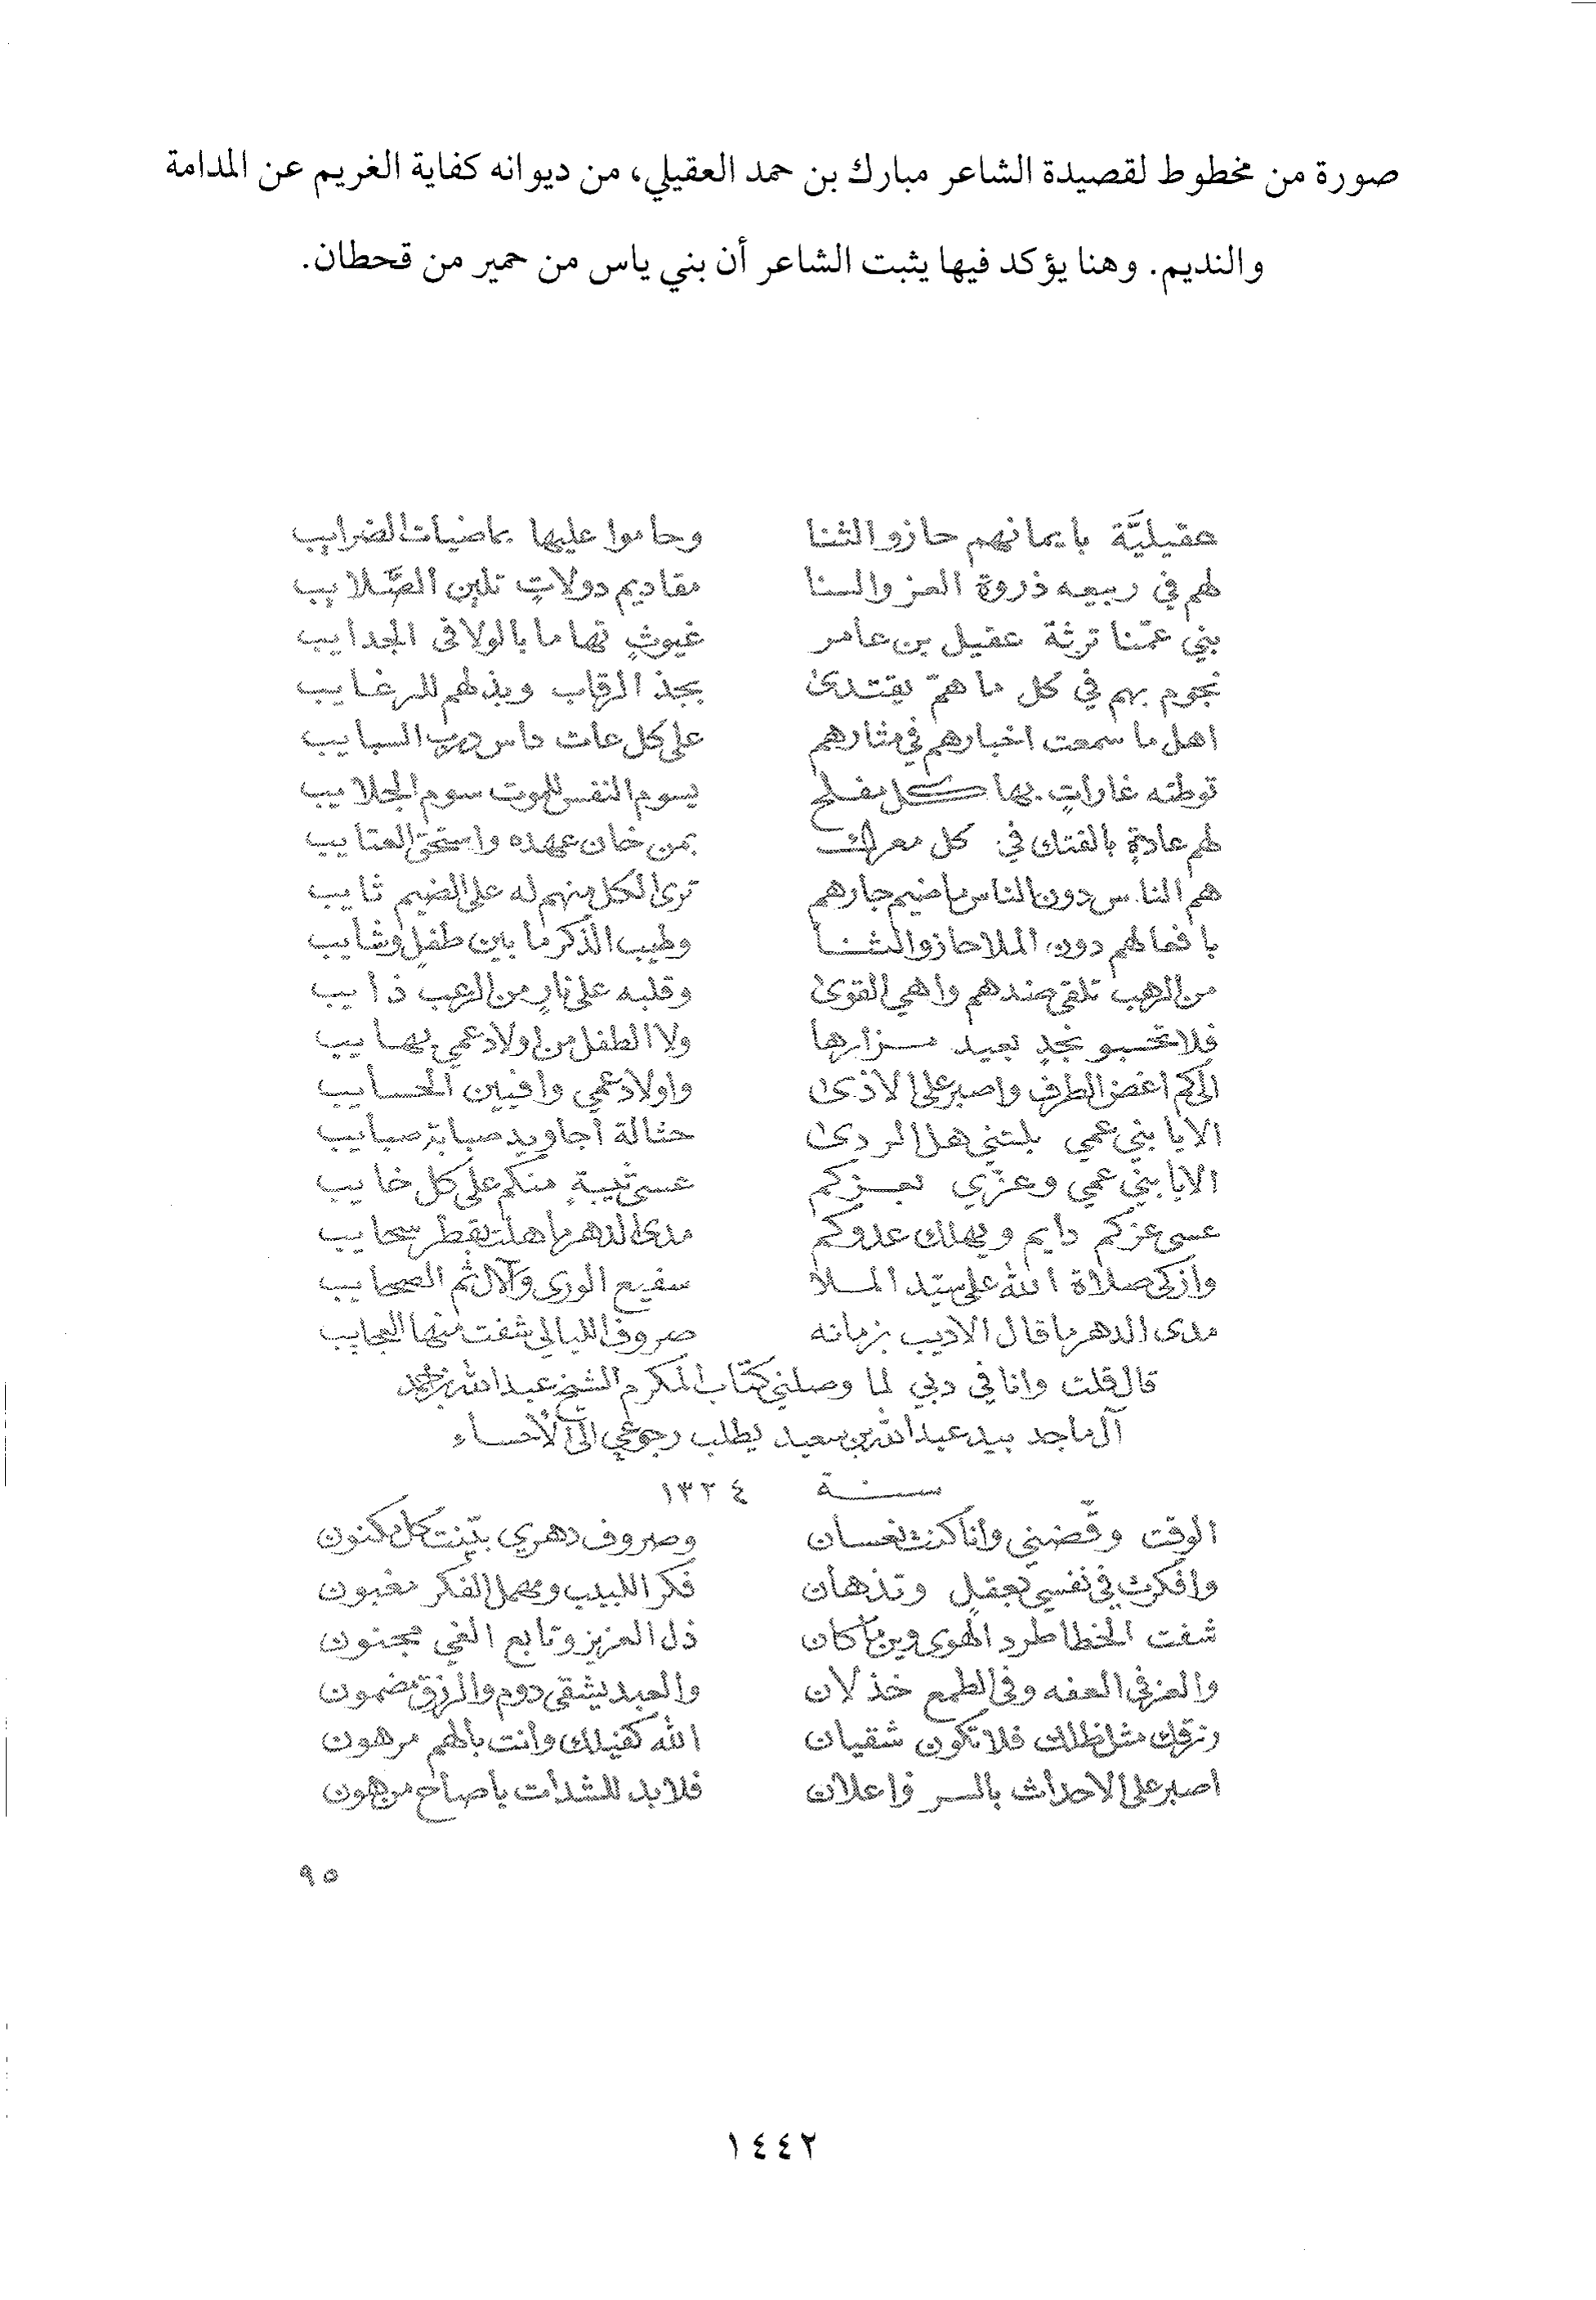 صورة من مخطوط لقصيدة الشاعر مبارك بن حمد العقيلي، من ديوانه كفاية الغريم عن المدامة
والنديم. وهنا يؤكد فيها يثبت الشاعر أن بني ياس من حمير من قحطان.
عقيليَّة بايمانهم حازو الثنا وحاموا عليها بماضيات الضرايب
لهم في ربيعه ذروة العز والسنا مقاديم دولاتٍ تلين الصَّلايب
بني عمّنا ترثة عقيل بن عامر غيوثٍ تهامابالولا في الجدايب
نجوم بهم في كل ما همّ يقتدى بجذ الرقاب وبذلهم للرغايب
اهل ما سمعت اخبارهم في مثارهم على كل عات داس درب السبايب
توطته غاراتٍ بها كل مفلح يسوم النفس للموت سوم الجلايب
لهم عادةٍ بالفتك في كل معرك بمن خان عهده واستحق العتايب
هم الناس دون الناس ماضيم جارهم ترى الكل منهم له على الضيم ثايب
بافعالهم دون الملا حازو الثنا وطيب الذكر ما بين طفلٍ وشايب
من الرهب تلقى ضندهم واهي القوى وقلبه على نارٍ من الرعب ذايب
فلا تحسبو نجدٍ بعيد مزارها ولا الطفل من اولاد عمي بهايب
الى كم اغض الطرف واصبر على الاذى واولاد عمي وافيين الحسايب
الايا بني عمي بلتني هل الردى حثالة اجاويد صبابة صبايب
الايا بني عمي وعزّي بعزكم عسى ثيبةٍ منكم على كل خايب
عسى عزكم دايم ويهلك عدوكم مدى الدهر ما هلت بقطر سحايب
وازكى صلاة الله على سيّد الملا شفيع الورى والآل ثم الصحايب
مدى الدهر ما قال الاديب بزمانه صروف الليالي شفت منها العجايب
قال قلت وانا في دبي لما وصلني كتاب المكرم الشيخ عبدالله بن احمد
آل ماجد بيد عبدالله بن سعيد يطلب رجوعي الى الأحساء
سنة ١٣٢٤
الوقت وقّضني وانا كنت نعسان وصروف دهري بيّنت كل مكنون
وافكرت في نفسي بعقلٍ وتذهان فكر اللبيب ومهمل الفكر مغبون
شفت الخطا طرد الهوى وين ما كان ذل العزيز وتابع الغي مجنون
والعز في العفه وفي الطمع خذلان والعبد يشقى دوم والرزق مضمون
رزقك مثل ظلك فلا تكون شقيان الله كفيلك وانت بالهم مرهون
اصبر على الاحداث بالسر واعلان فلا بد للشدات ياصاح
٩٥
١٤٤٢